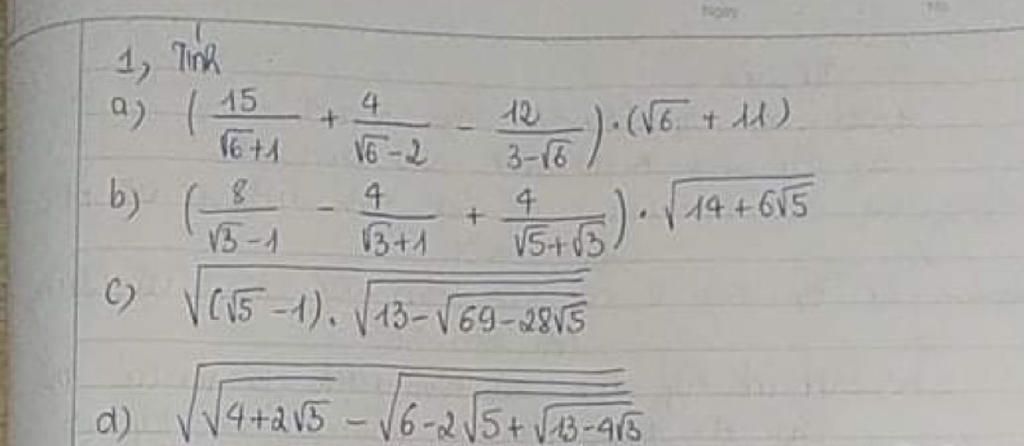 Ngày No
1, Tính
a) (15/(√6+1) + 4/(√6-2) - 12/(3-√6)) · (√6 + 11)
b) (8/(√3-1) - 4/(√3+1) + 4/(√5+√3)) · √(14+6√5)
c) √((√5-1) . √(13-√(69-28√5)))
d) √(√(4+2√3) - √(6-2√(5+√(13-4√3))))